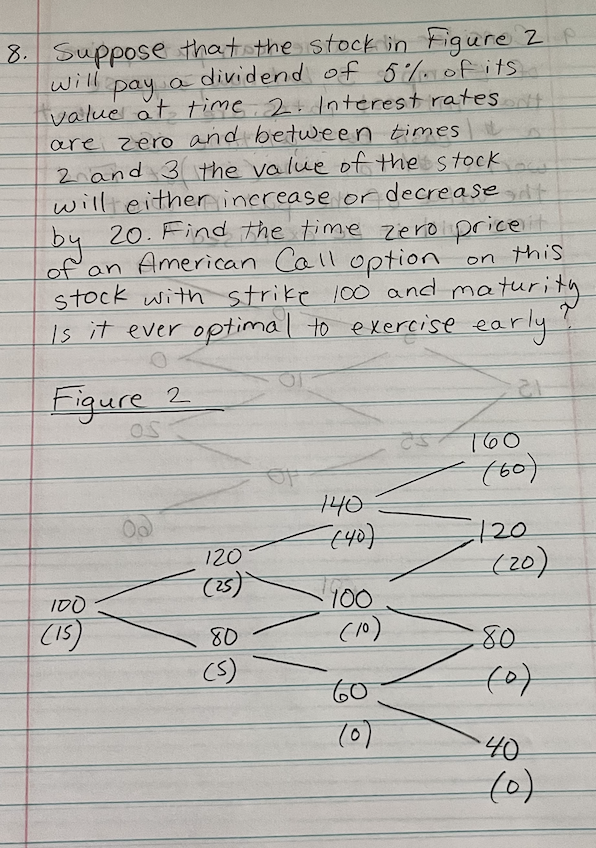 8. Suppose that the stock in Figure 2
will pay a dividend of 5% of its
value at time 2. Interest rates
are zero and between times
2 and 3 the value of the stock
will either increase or decrease
by 20. Find the time zero price
of an American Call option on this
stock with strike 100 and maturity
Is it ever optimal to exercise early?
Figure 2
160
(60)
140
(40)
120
(20)
120
(25)
100
(15)
100
(10)
80
(5)
80
(0)
60
(0)
40
(0)